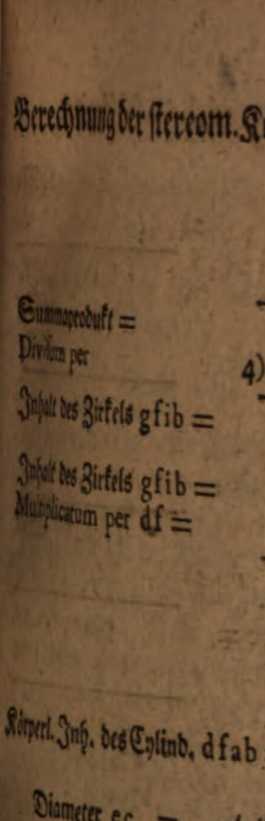 Berechnung der stereom. Kö
Summaprodukt =
Divisum per 4)
Inhalt des Zirkels gfib =
Inhalt des Zirkels gfib =
Multiplicatum per df =
Körperl. Inh. des Cylind. dfab
Diameter